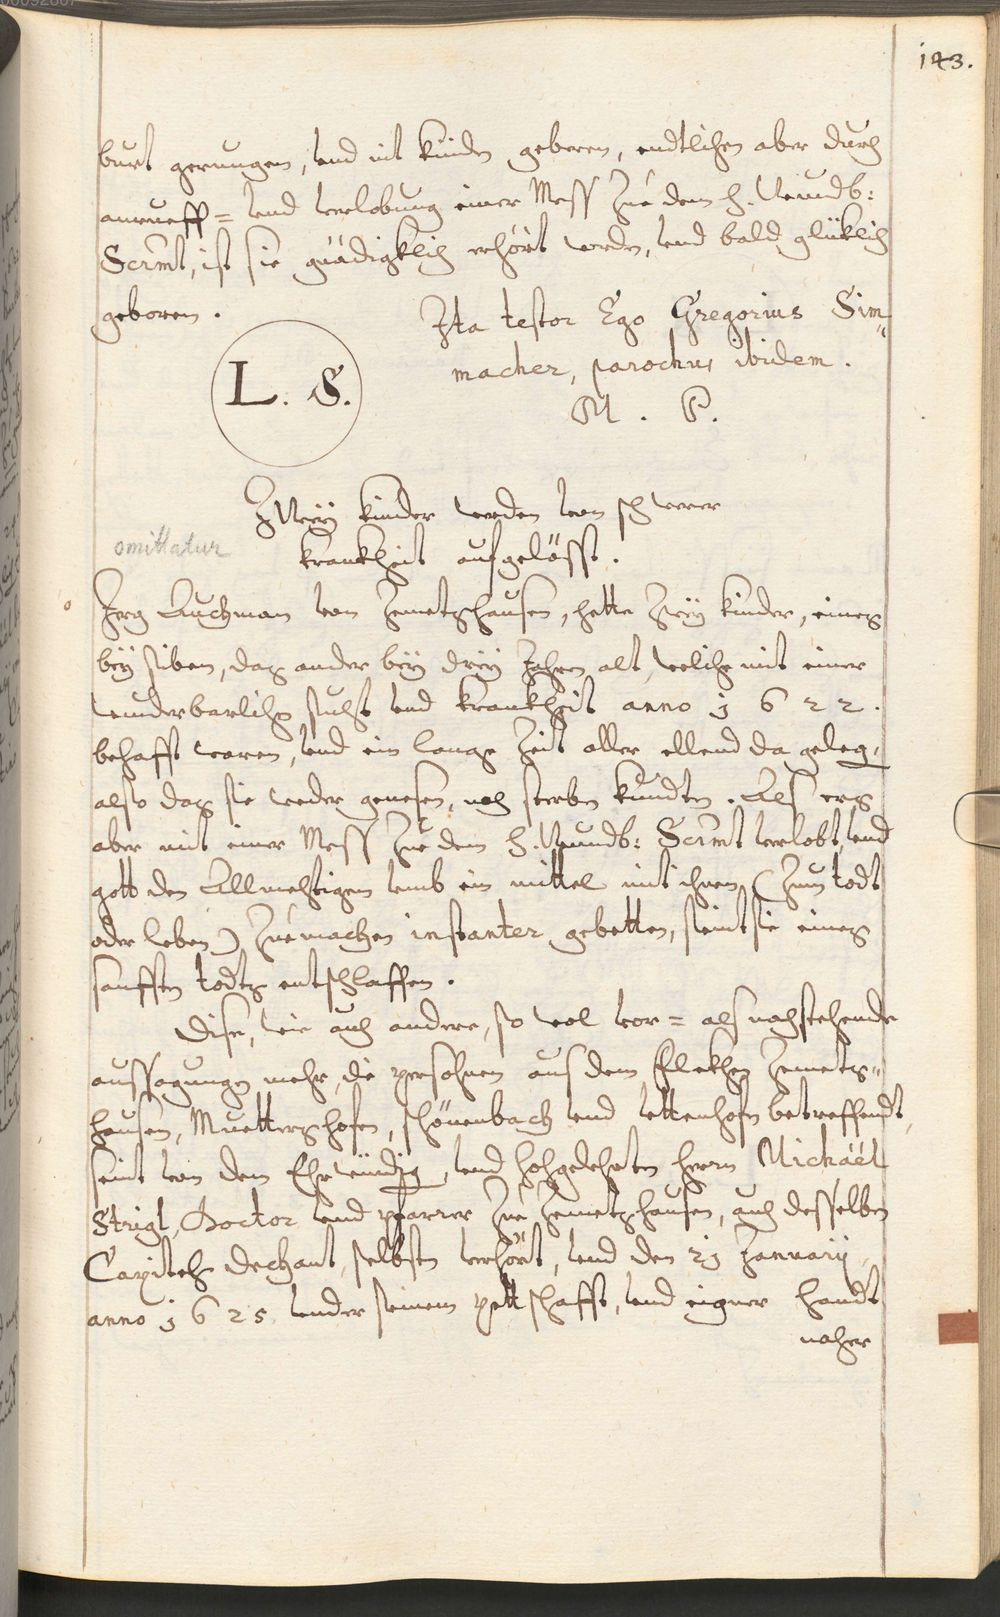 143.
burt gerungen, vnd nit kinden geberen, endtlichen aber durch
anrueff= vnd verlobung einer Mess zue dem h. Wundb:
Scrmt, ist sie gnädigklich erhört worden, vnd bald glüklich
geboren.
Ita testor Ego Gregorius Sim„
macher, parochus ibidem.
M. P.
L. S.
Zwey kinder werden von schwerer
krankheit aufgelösst.
omittatur
Jerg Luchman von Zemetzhausen, hette zwey kinder, eines
bey siben, das ander bey drey Jahren alt, weliche mit einer
wunderbarlichen sucht vnd krankheit anno 1622.
behafft waren, vnd ein lange zeit aller ellend da geleg,
also das sie weder genesen, noch sterben kundten. Als ers
aber mit einer Mess zue dem h. Wundb: Scrmt verlobt, vnd
gott den Allmechtigen vmb ein mittel mit ihnen (zum todt
oder leben) zue machen instanter gebetten, seint sie eines
sanfften todts entschlaffen.
Dise, wie auch andere, so wol vor= als nachstehende
aussagungen mehr, die persohnen aus dem Flekhen Zemetz„
hausen, Muettershofen, schönenbach vnd vttenhofen betreffendt,
seint von dem Ehrwürdig, vnd hochgelehrten herrn Michäel
Strigl, Doctor vnd pfarrer zue Zemetzhausen, auch desselben
Capitels dechant, selbsten verhört, vnd den 21 Januarij
anno 1625 vnder seinem pettschafft, vnd eigner handt
naher